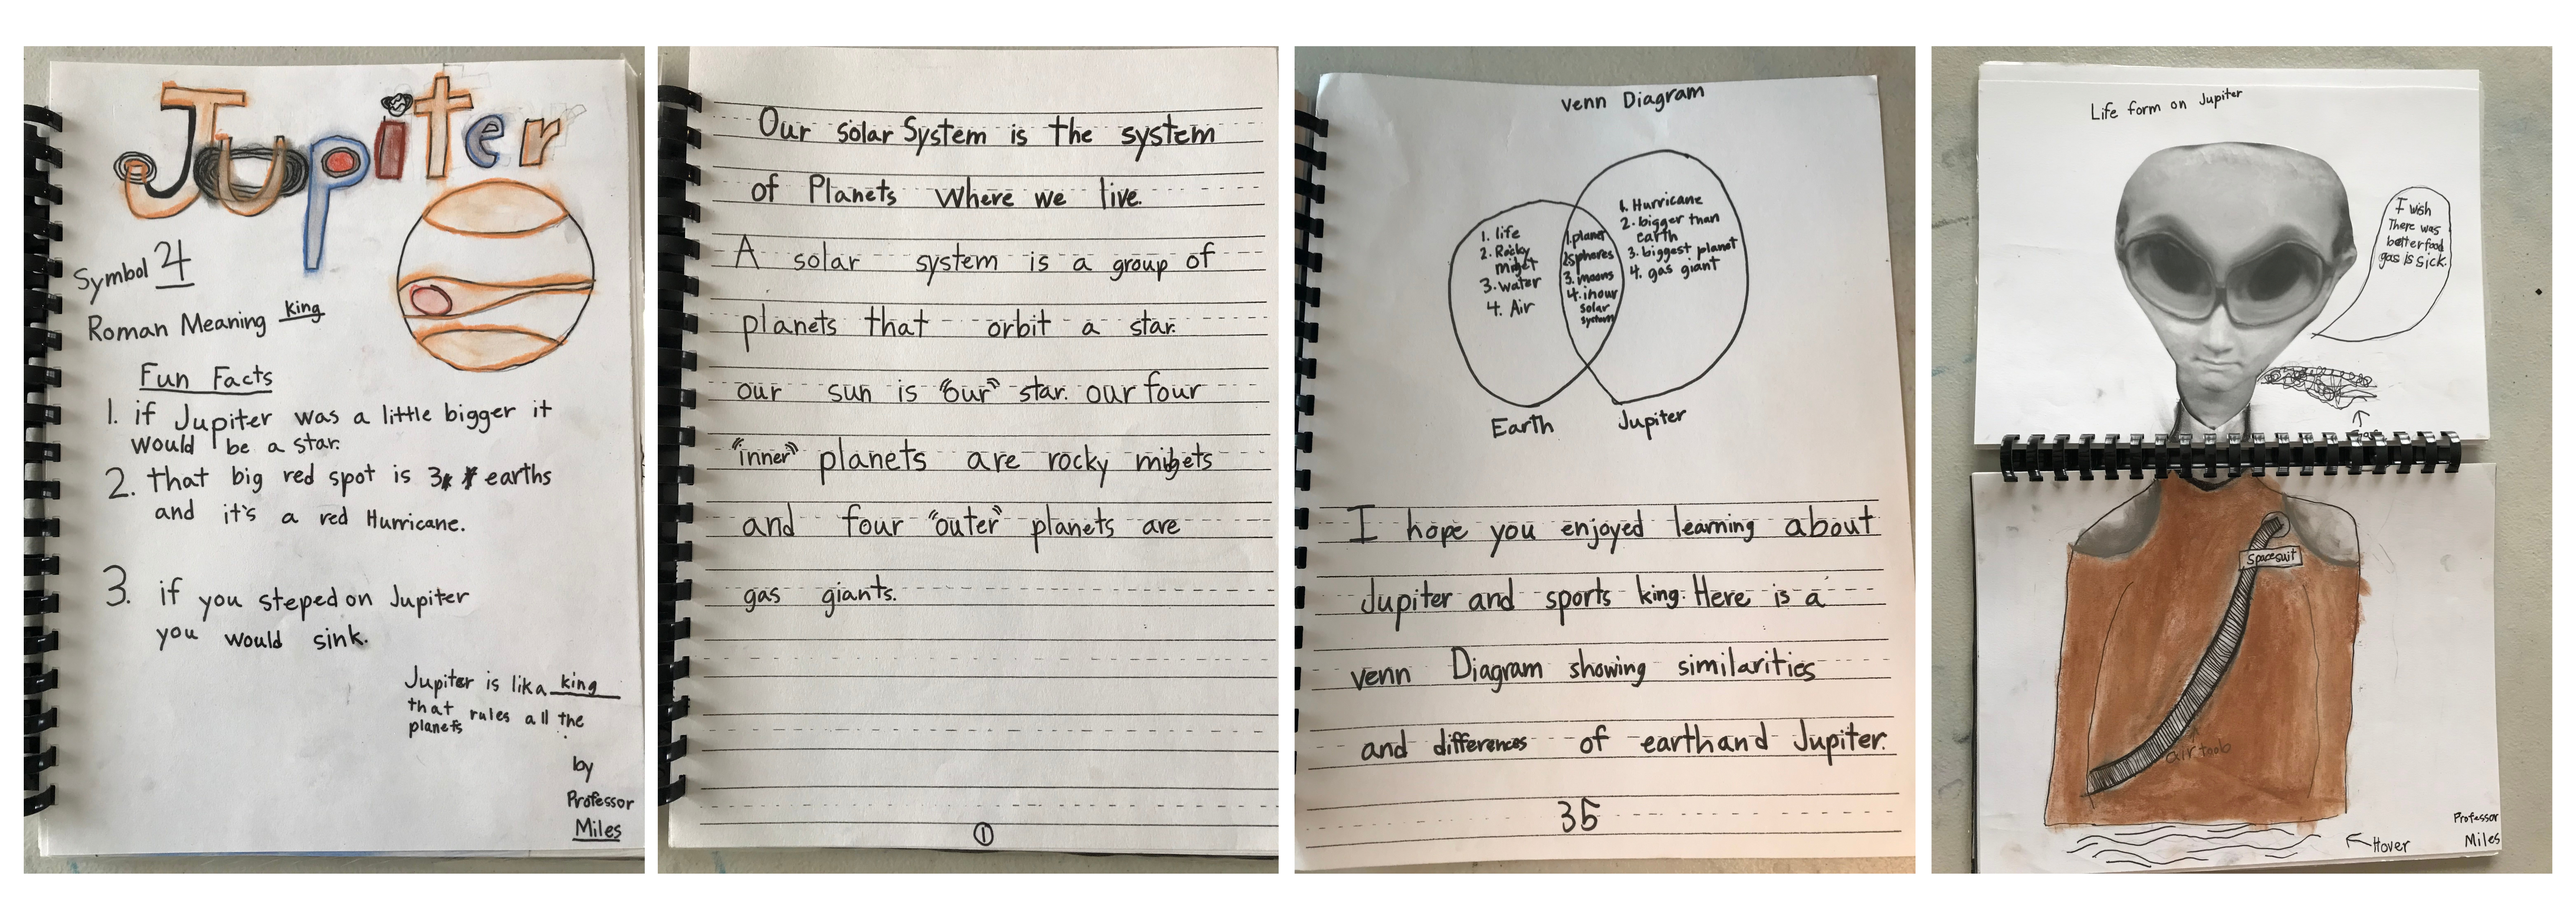 Jupiter
Symbol 4
Roman Meaning king
Fun Facts
1. if Jupiter was a little bigger it
would be a star.
2. that big red spot is 3 earths
and it's a red Hurricane.
3. if you steped on Jupiter
you would sink.
Jupiter is lika king
that rules all the
planets
by
Professor
Miles
Our solar System is the system
of Planets where we live.
A solar system is a group of
planets that orbit a star.
our sun is "our" star. our four
"inner" planets are rocky migets
and four "outer" planets are
gas giants.
1
venn Diagram
1. life
2. Rocky
midget
3. water
4. Air
1. planet
2. spheres
3. moons
4. in our
solar
system
1. Hurricane
2. bigger than
earth
3. biggest planet
4. gas giant
Earth
Jupiter
I hope you enjoyed learning about
Jupiter and sports king. Here is a
venn Diagram showing similarities
and differences of earth and Jupiter.
35
Life form on Jupiter
I wish
There was
better food
gas is sick.
Spacesuit
air toob
Hover
Professor
Miles